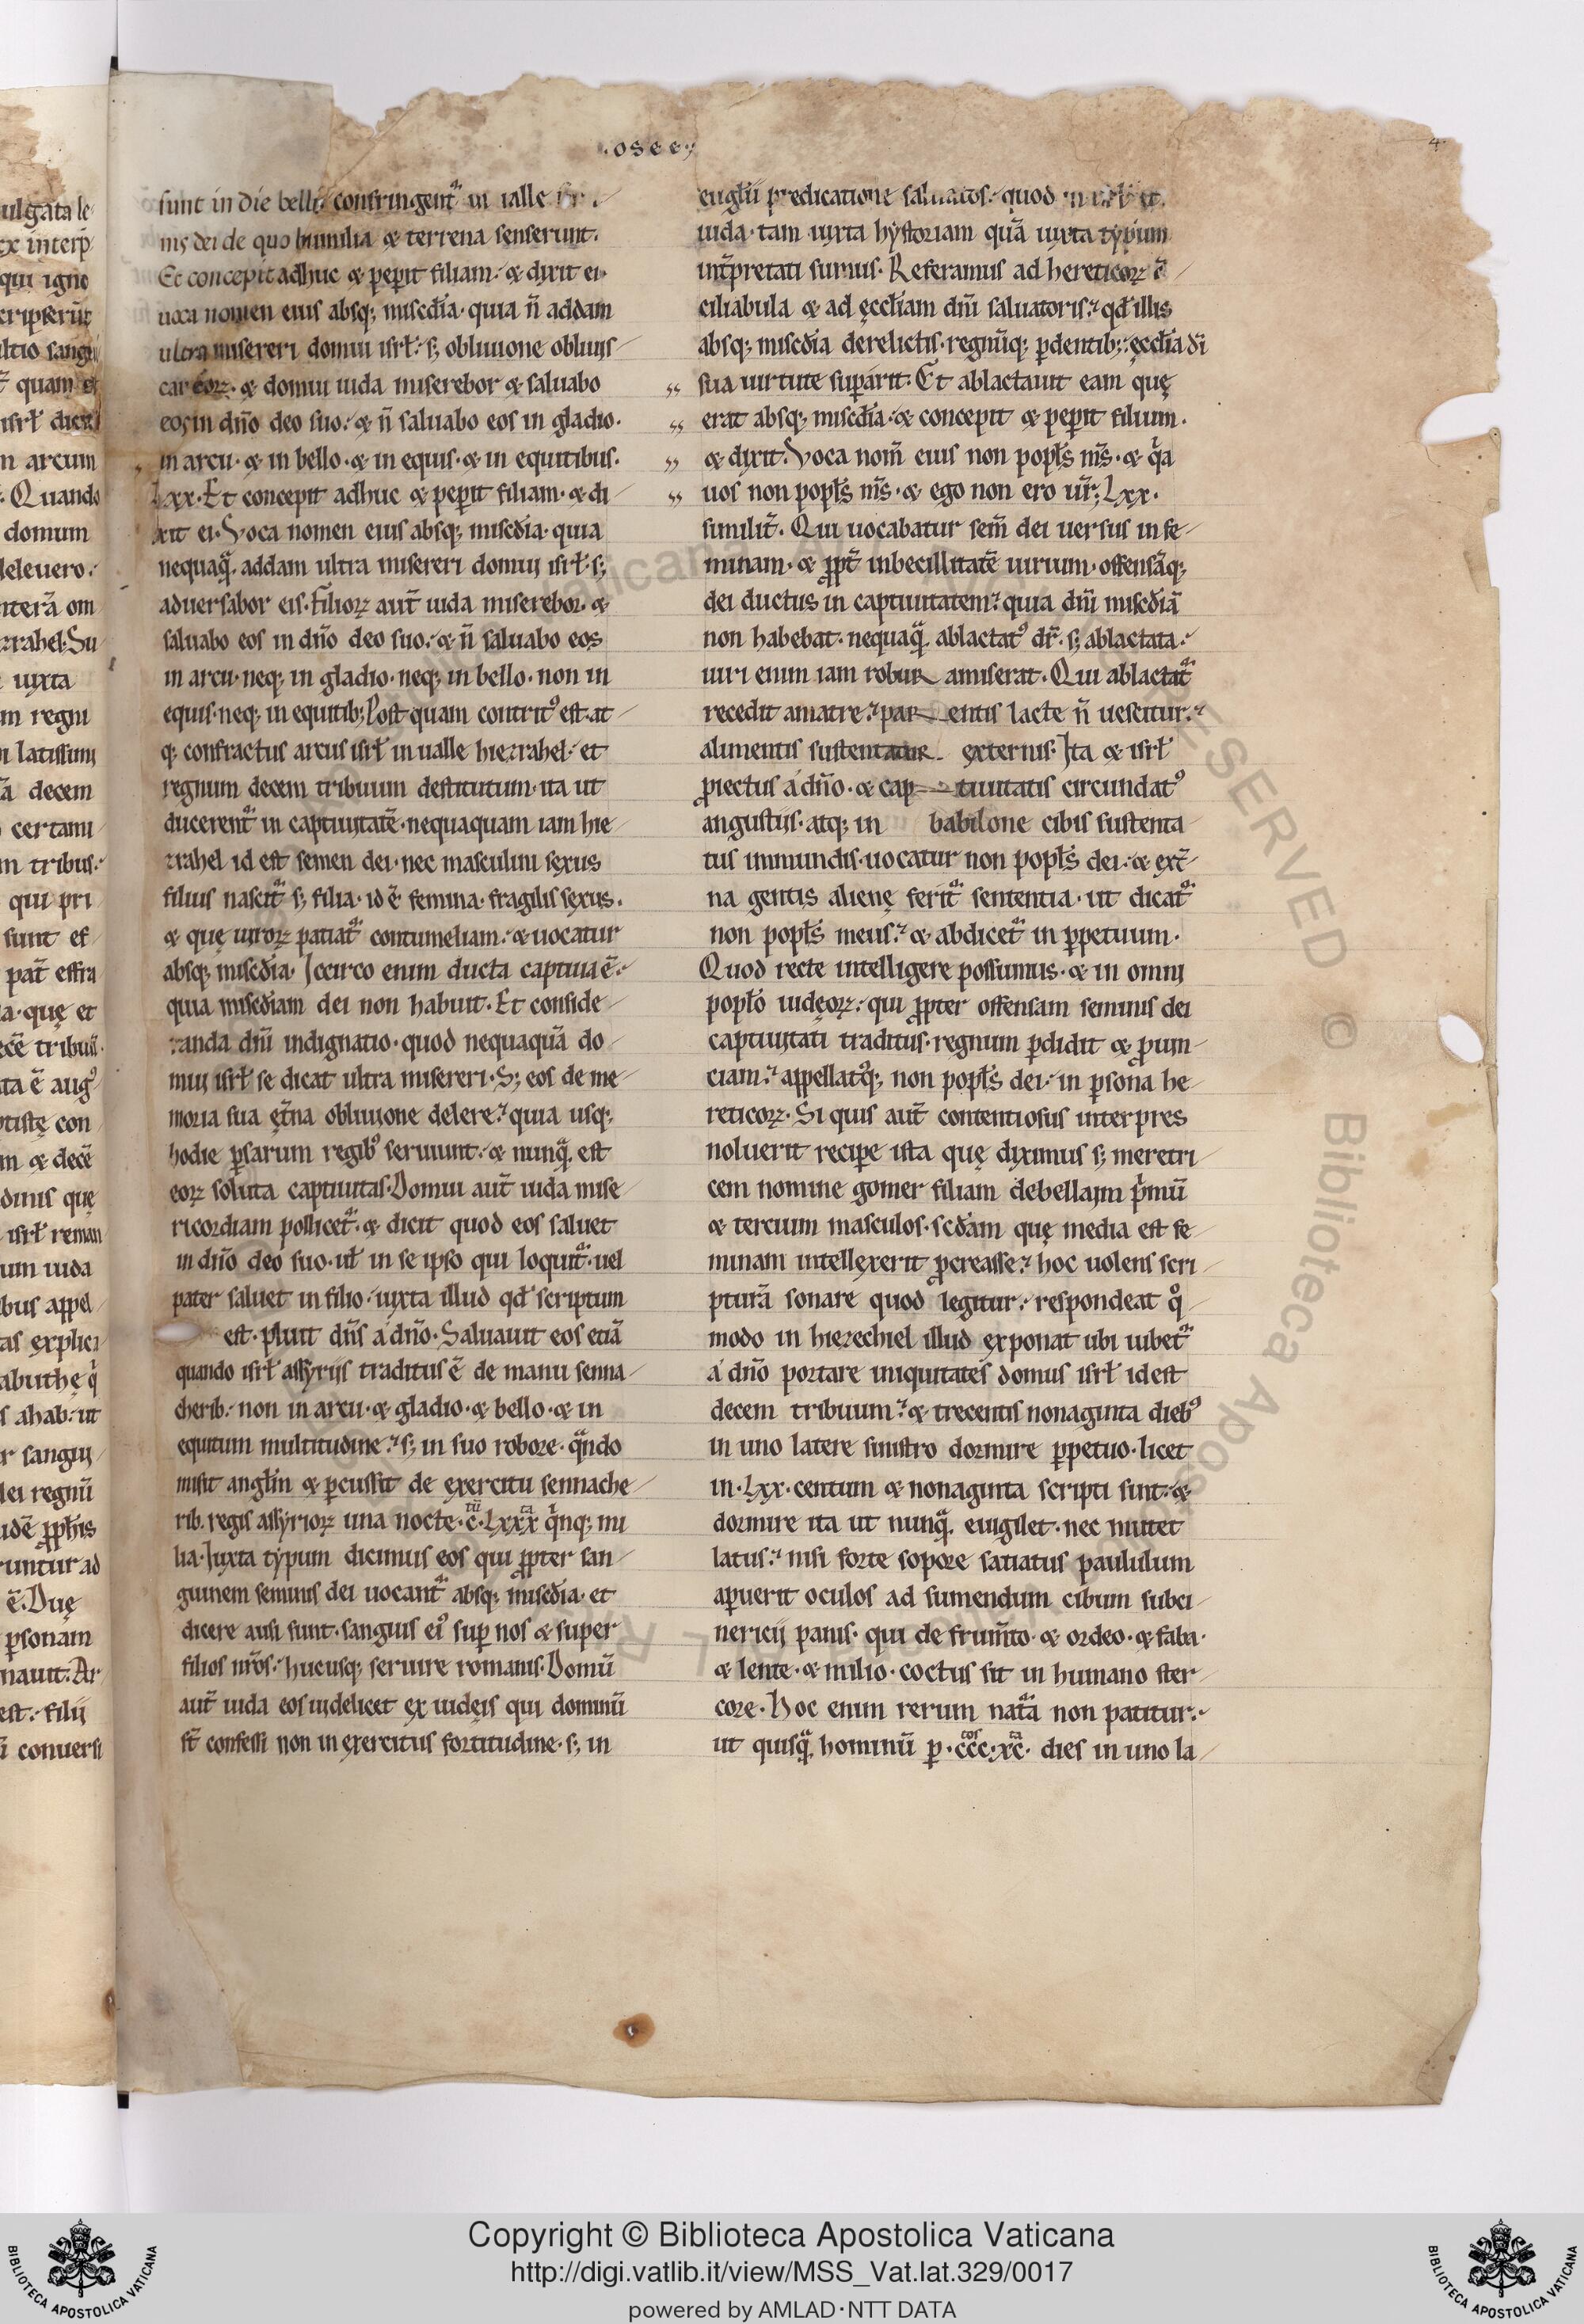 .osee.
4
sunt in die belli confringent᷑ in ualle
nis dei de quo humilia & terrena senserunt.
Et concepit adhuc & peperit filiam. & dixit ei
uoca nomen eius absq; misc̄dia. quia n̄ addam
ultra misereri domui isrł. s; obliuione obliuis-
car eoꝝ. & domui iuda miserebor & saluabo
eos in dn̄o deo suo. & n̄ saluabo eos in gladio.
in arcu. & in bello. & in equis. & in equitibus.
Lxx. Et concepit adhuc & peperit filiam. & di-
xit ei. Voca nomen eius absq; misc̄dia. quia
nequaq̄. addam ultra misereri domui isrł. s;
aduersabor eis. Filioꝝ aut̄ iuda miserebor. &
saluabo eos in dn̄o deo suo. & n̄ saluabo eos
in arcu. neq; in gladio. neq; in bello. non in
equis. neq; in equitib; Postquam contrit᷒ est. at-
q; confractus arcus isrł in ualle hiezrahel. et
regnum decem tribuum destitutum. ita ut
ducerent᷑ in captiuitatē. nequaquam iam hie-
zrahel id est semen dei. nec masculini sexus
filius nascit᷑ s; filia. id ē femina. fragilis sexus.
& quę uiroꝝ patiat᷑ contumeliam. & uocatur
absq; misc̄dia. Iccirco enim ducta captiua ē.
quia misc̄diam dei non habuit. Et conside-
randa dn̄i indignatio. quod nequaquā do-
mui isrł se dicat ultra misereri. S; eos de me-
moria sua ęt̄na obliuione delere. quia usq;
hodie ꝑsarum regib᷒ seruiunt. & nunq̄. est
eoꝝ soluta captiuitas. Domui aut̄ iuda mise-
ricordiam pollicet᷑. & dicit quod eos saluet
in dn̄o deo suo. uł in se ipso qui loquit᷑. uel
pater saluet in filio. iuxta illud qđ scriptum
est. pluit dn̄s a dn̄o. Saluauit eos etiā
quando isrł assyriis traditus ē de manu senna-
cherib. non in arcu. & gladio. & bello. & in
equitum multitudine. s; in suo robore. q̄ndo
misit angl̄m & ꝑcussit de exercitu sennache-
rib. regis assyrioꝝ una nocte. c. Lxxx q̄nq; mi
lia. Iuxta typum dicimus eos qui ꝓpter san-
guinem seminis dei uocant᷑ absq; misc̄dia. et
dicere ausi sunt. sanguis ei᷒ suꝑ nos & super
filios nr̄os. hucusq; seruire romanis. Domū
aut̄ iuda eos uidelicet ex iudeis qui dominū
st̄ confessi non in exercitus fortitudine. s; in
euglii predicatione saluatos. quod
iuda. tam iuxta hystoriam quā iuxta typum
int̄pretati sumus. Referamus ad hereticoꝝ
ciliabula & ad ęccl̄iam dn̄i saluatoris. qđ illis
absq; misc̄dia derelictis. regnūq; ꝑdentib; ęccl̄ia di
sua uirtute suꝑarit. Et ablactauit eam quę
erat absq; misc̄dia. & concepit & peperit filium.
& dixit. Voca nom̄ eius non popl̄s ms̄. & q̄a
uos non popl̄s ms̄. & ego non ero ur̄; Lxx.
similit̄. Qui uocabatur sem̄ dei uersus in fe-
minam. & ꝓpt̄ inbecillitatē uirium. offensāq;
dei ductus in captiuitatem. quia dn̄i misc̄diā
non habebat. nequaq̄. ablactat᷒ dr̄. s; ablactata.
uiri enim iam robur amiserat. Qui ablactat᷑
recedit a matre. par entis lacte n̄ uescitur.
alimentis sustentatur externis. Ita & isrł
ꝓiectus a dn̄o. & cap tiuitatis circundat᷒
angustiis. atq; in babilone cibis sustenta-
tus inmundis. uocatur non popl̄s dei. & ext̄-
na gentis alienę ferit᷑ sententia. ut dicat᷑
non popl̄s meus. & abdicet᷑ in ꝑpetuum.
Quod recte intelligere possumus. & in omni
popl̄o iudęoꝝ. qui ꝓpter offensam seminis dei
captiuitati traditus. regnum ꝑdidit & ꝓuin-
ciam. appellatq̄; non popl̄s dei. in ꝑsona he-
reticoꝝ. Si quis aut̄ contentiosus interpres
noluerit reciꝑe ista quę diximus s; meretri
cem nomine gomer filiam debellaim p̄mū
& tercium masculos. sc̄dam quę media est fe-
minam intellexerit ꝓcreasse. hoc uolens scri-
pturā sonare quod legitur. respondeat q̊-
modo in hiezechiel illud exponat ubi iubet᷑
a dn̄o portare iniquitates domus isrł id est
decem tribuum. & trecentis nonaginta dieb᷒
in uno latere sinistro dormire ꝑpetuo. licet
in. Lxx. centum & nonaginta scripti sint. &
dormire ita ut nunq̄. euigilet. nec mutet
latus. nisi forte sopore satiatus paululum
aꝑuerit oculos ad sumendum cibum subci-
nericii panis. qui de frum̄to. & ordeo. & faba.
& lente. & milio. coctus sit in humano ster-
core. Hoc enim rerum nat᷑a non patitur.
ut quisq̄. hominū ꝑ. ccc. xc. dies in uno la-
Copyright © Biblioteca Apostolica Vaticana
http://digi.vatlib.it/view/MSS_Vat.lat.329/0017
powered by AMLAD·NTT DATA